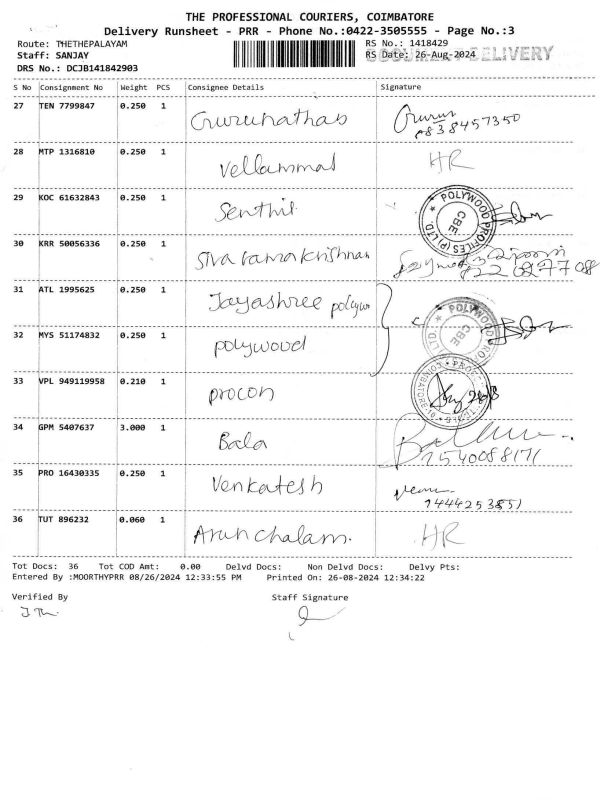 THE PROFESSIONAL COURIERS, COIMBATORE
Delivery Runsheet - PRR - Phone No.:0422-3505555 - Page No.:3
Route: THETHEPALAYAM
RS No.: 1418429
Staff: SANJAY
RS Date: 26-Aug-2024
DOCUMENT DELIVERY
DRS No.: DCJB141842903
S No Consignment No Weight PCS Consignee Details Signature
27 TEN 7799847 0.250 1 Gurunathas
9838457350
28 MTP 1316810 0.250 1 Vellammal HR
29 KOC 61632843 0.250 1 Senthil
POLYWOOD PROFILES (P) LTD. CBE
30 KRR 50056336 0.250 1 Sivaramakrishnan
31 ATL 1995625 0.250 1 Jayashree polyw
32 MYS 51174832 0.250 1 polywood
POLYWOOD CBE
33 VPL 949119958 0.210 1 procon
34 GPM 5407637 3.000 1 Bala
7540088171
35 PRO 16430335 0.250 1 Venkatesh
7444253851
36 TUT 896232 0.060 1 Arunchalam. HR
Tot Docs: 36 Tot COD Amt: 0.00 Delvd Docs: Non Delvd Docs: Delvy Pts:
Entered By :MOORTHYPRR 08/26/2024 12:33:55 PM Printed On: 26-08-2024 12:34:22
Verified By Staff Signature